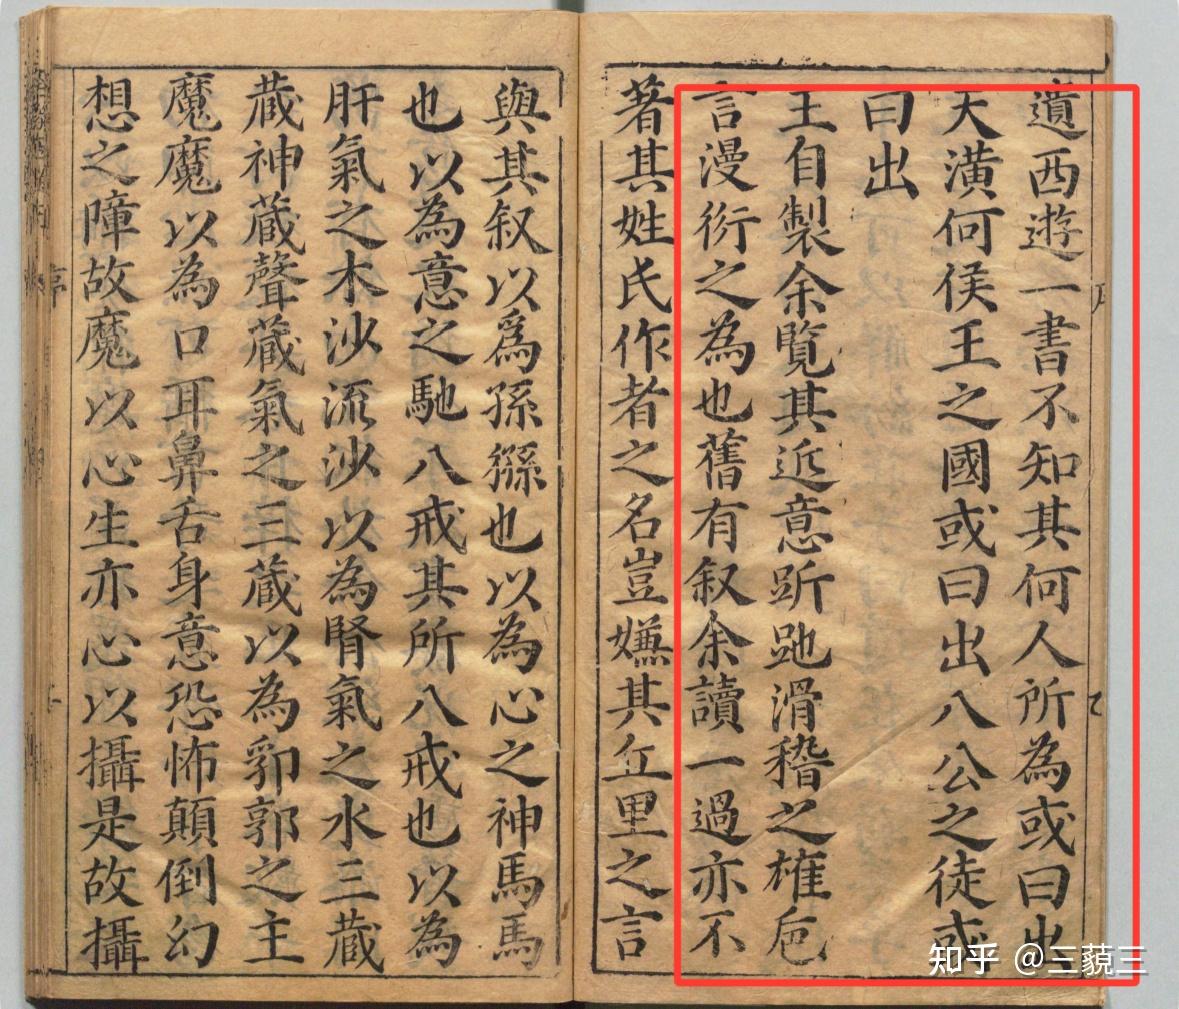 道西遊一書不知其何人所為或曰出
天潢何侯王之國或曰出八公之徒或
曰出
王自製余覽其近意跅㢮滑稽之雄卮
言漫衍之為也舊有叙余讀一過亦不
著其姓氏作者之名豈嫌其丘里之言
與其叙以爲孫猻也以為心之神馬馬
也以為意之馳八戒其所八戒也以為
肝氣之木沙流沙以為腎氣之水三蔵
蔵神蔵聲蔵氣之三蔵以為郛郭之主
魔魔以為口耳鼻舌身意恐怖顛倒幻
想之障故魔以心生亦心以攝是故攝
序
知乎 @三藐三